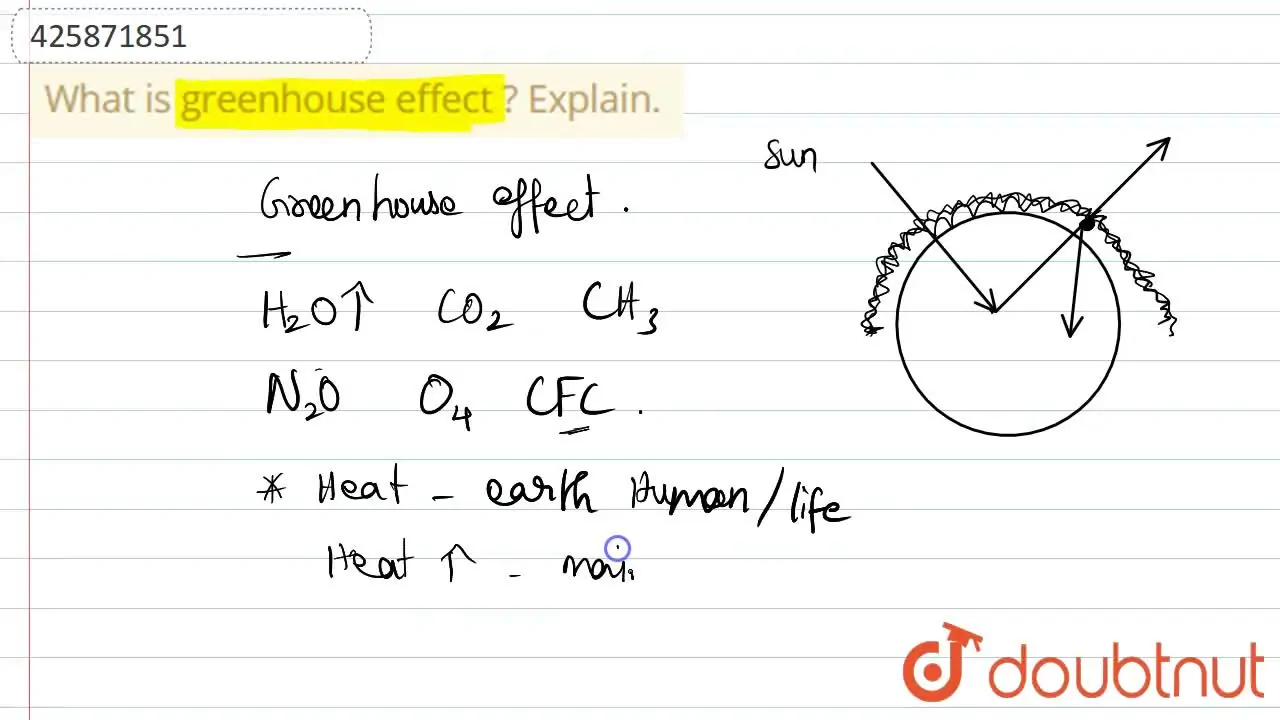 425871851
What is greenhouse effect ? Explain.
Sun
Greenhouse effect .
H₂O↑ CO₂ CH₃
N₂O O₄ CFC .
* Heat - earth Human / life
Heat ↑ -
doubtnut